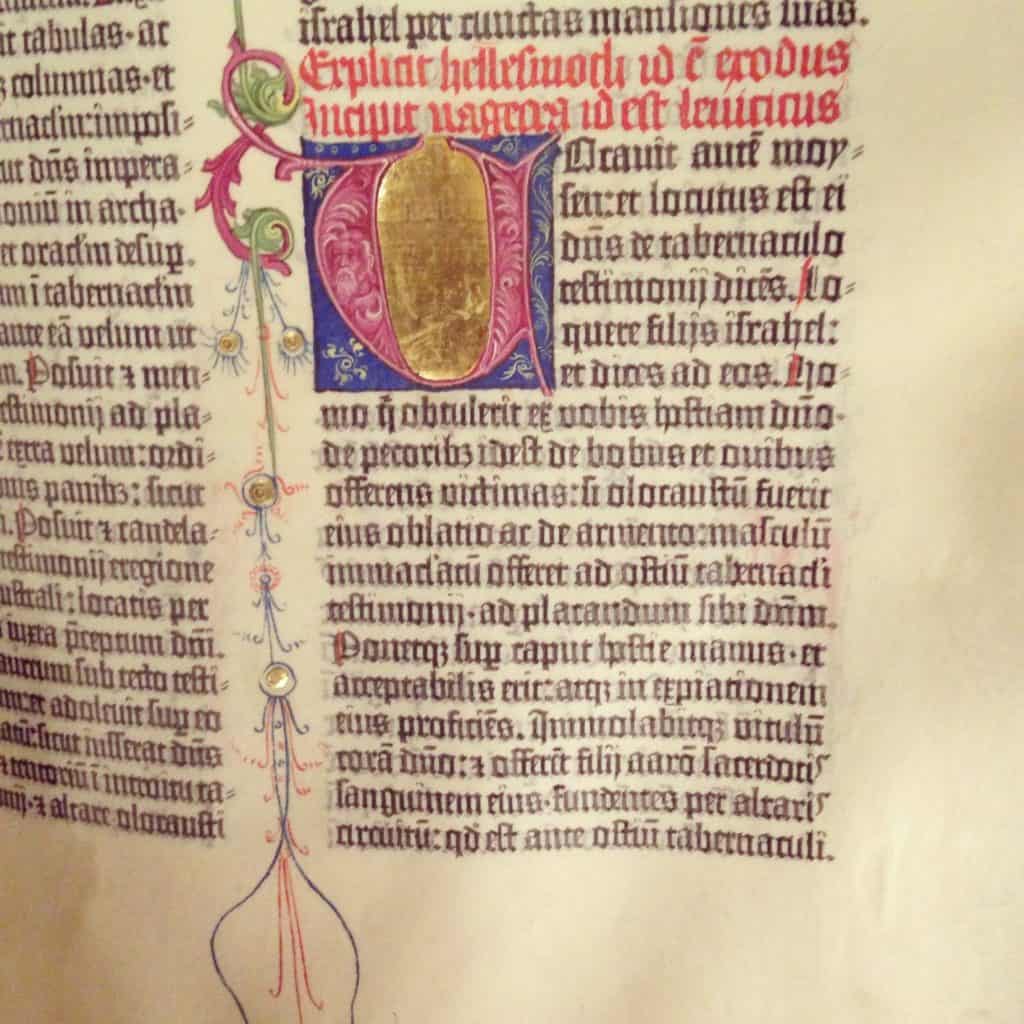 it tabulas·ac
columnas·et
rnaclm:imposi=
ut dn̄s impera=
oniū in archa·
et oraclm desup.
am ī tabernaclm
ante eā velum ut
m. Posuit ⁊ men=
estimonij ad pla=
extra velum:ordi=
panibꝫ: sicut
Posuit ⁊ candela=
testimonij eregione
ustrali: locatis per
iuxta p̄ceptum dn̄i.
aureum sub tecto testi=
et adoleuit sup̲ eo
sicut iusserat dn̄s
⁊ tentoriū ī introitu ta=
⁊ altare olocausti
israhel per cunctas mansiones suas.
Explicit hellesmoth id ē exodus
Incipit vagecra id est leuiticus
Vocauit autē moy=
sen:et locutus est ei
dn̄s de tabernaculo
testimonij dicēs. Lo=
quere filijs israhel:
et dices ad eos. Ho=
mo q̄ obtulerit ex vobis hostiam dn̄o·
de pecoribꝫ idest de bobus et ouibus
offerens victimas: si olocaustū fuerit
eius oblatio ac de armento:masculū
immaclatū offeret ad ostiū tabernacli
testimonij·ad placandum sibi dn̄m.
Ponetqꝫ sup̲ caput hostie manus·et
acceptabilis erit:atqꝫ in expiationem
eius proficiēs. Immolabitqꝫ vitulū
corā dn̄o:⁊ offerēt filij aarō sacerdotis
sanguinem eius·fundentes per altaris
circuitū: qd̄ est ante ostiū tabernaculi.